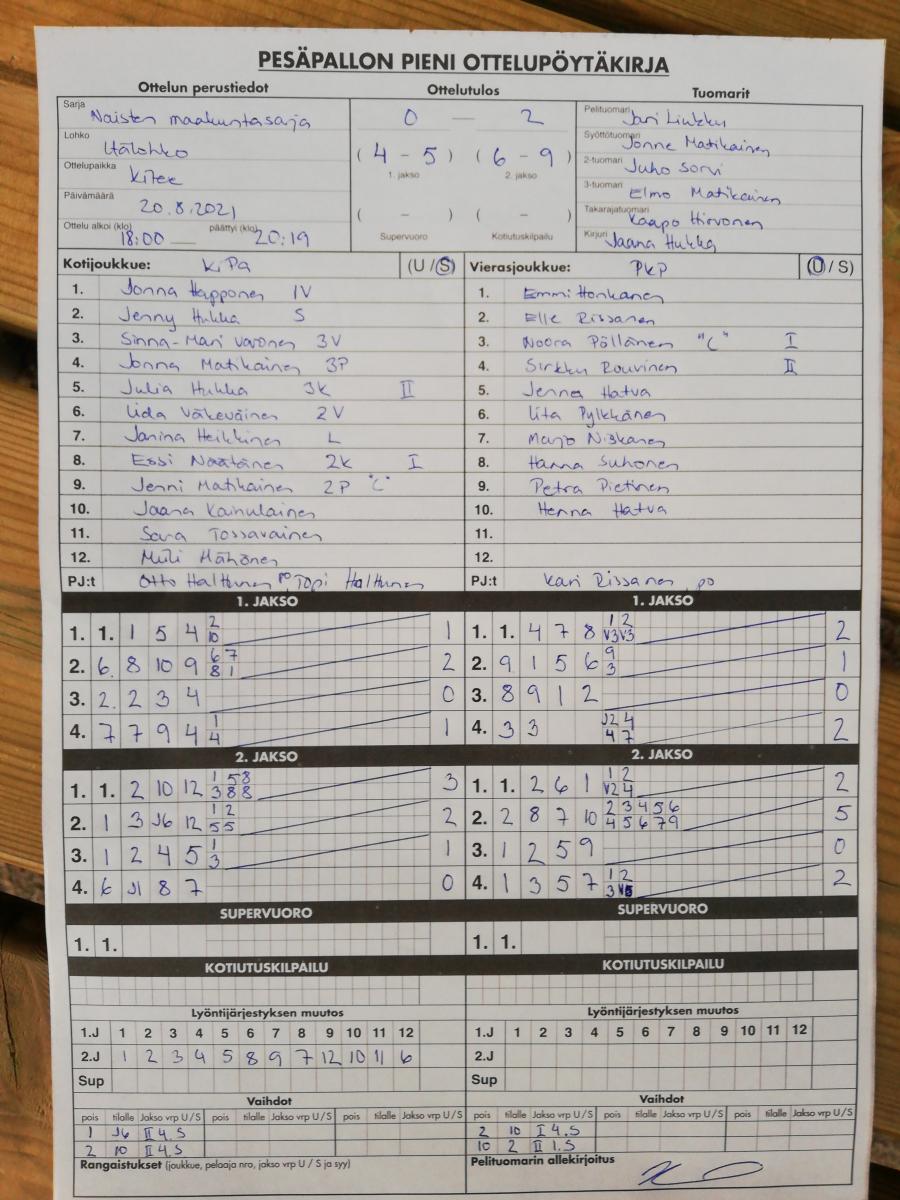 PESÄPALLON PIENI OTTELUPÖYTÄKIRJA
Ottelun perustiedot Ottelutulos Tuomarit
Sarja Naisten maakuntasarja
Lohko Itälohko
Ottelupaikka Kitee
Päivämäärä 20.8.2021
Ottelu alkoi (klo) 18:00 päättyi (klo) 20:19
0 — 2
( 4 - 5 ) ( 6 - 9 )
1. jakso 2. jakso
( - ) ( - )
Supervuoro Kotiutuskilpailu
Pelituomari Jari Liukku
Syöttötuomari Jonne Matikainen
2-tuomari Juho Sorvi
3-tuomari Elmo Matikainen
Takarajatuomari Kaapo Hirvonen
Kirjuri Jaana Hukka
Kotijoukkue: KiPa (U / S)
1. Jonna Happonen IV
2. Jenny Hukka S
3. Sinna-Mari Varonen 3V
4. Jonna Matikainen 3P
5. Julia Hukka 3K II
6. Iida Väkeväinen 2V
7. Janina Heikkinen L
8. Essi Näätänen 2K I
9. Jenni Matikainen 2P "C"
10. Jaana Kainulainen
11. Sara Tossavainen
12. Milli Mähönen
PJ:t Otto Halttunen po, Topi Halttunen
Vierasjoukkue: PKP (U / S)
1. Emmi Honkanen
2. Elle Rissanen
3. Noora Pöllänen "C" I
4. Sirkku Rouvinen II
5. Jenna Hatva
6. Iita Pylkkänen
7. Marjo Niskanen
8. Hanna Suhonen
9. Petra Pietinen
10. Henna Hatva
11.
12.
PJ:t Kari Rissanen po
1. JAKSO
1. 1. 1 5 4 2 10 1
2. 6. 8 10 9 6 7 8 1 2
3. 2. 2 3 4 0
4. 7 7 9 4 1 4 1
1. JAKSO
1. 1. 4 7 8 1 2 V3 V3 2
2. 9 1 5 6 9 3 1
3. 8 9 1 2 0
4. 3 3 J2 4 4 7 2
2. JAKSO
1. 1. 2 10 12 1 5 8 3 8 8 3
2. 1 3 J6 12 1 2 5 5 2
3. 1 2 4 5 1 3 1
4. 6 J1 8 7 0
2. JAKSO
1. 1. 2 6 1 1 2 V2 4 2
2. 2 8 7 10 2 3 4 5 6 4 5 6 7 9 5
3. 1 2 5 9 0
4. 1 3 5 7 1 2 3 2
SUPERVUORO
1. 1.
SUPERVUORO
1. 1.
KOTIUTUSKILPAILU
KOTIUTUSKILPAILU
Lyöntijärjestyksen muutos
1.J 1 2 3 4 5 6 7 8 9 10 11 12
2.J 1 2 3 4 5 8 9 7 12 10 11 6
Sup
Lyöntijärjestyksen muutos
1.J 1 2 3 4 5 6 7 8 9 10 11 12
2.J
Sup
Vaihdot
pois tilalle Jakso vrp U / S pois tilalle Jakso vrp U / S pois tilalle Jakso vrp U / S
1 J6 II 4.S
2 10 II 4.S
Rangaistukset (joukkue, pelaaja nro, jakso vrp U / S ja syy)
Vaihdot
pois tilalle Jakso vrp U / S pois tilalle Jakso vrp U / S pois tilalle Jakso vrp U / S
2 10 I 4.S
10 2 II 1.S
Pelituomarin allekirjoitus